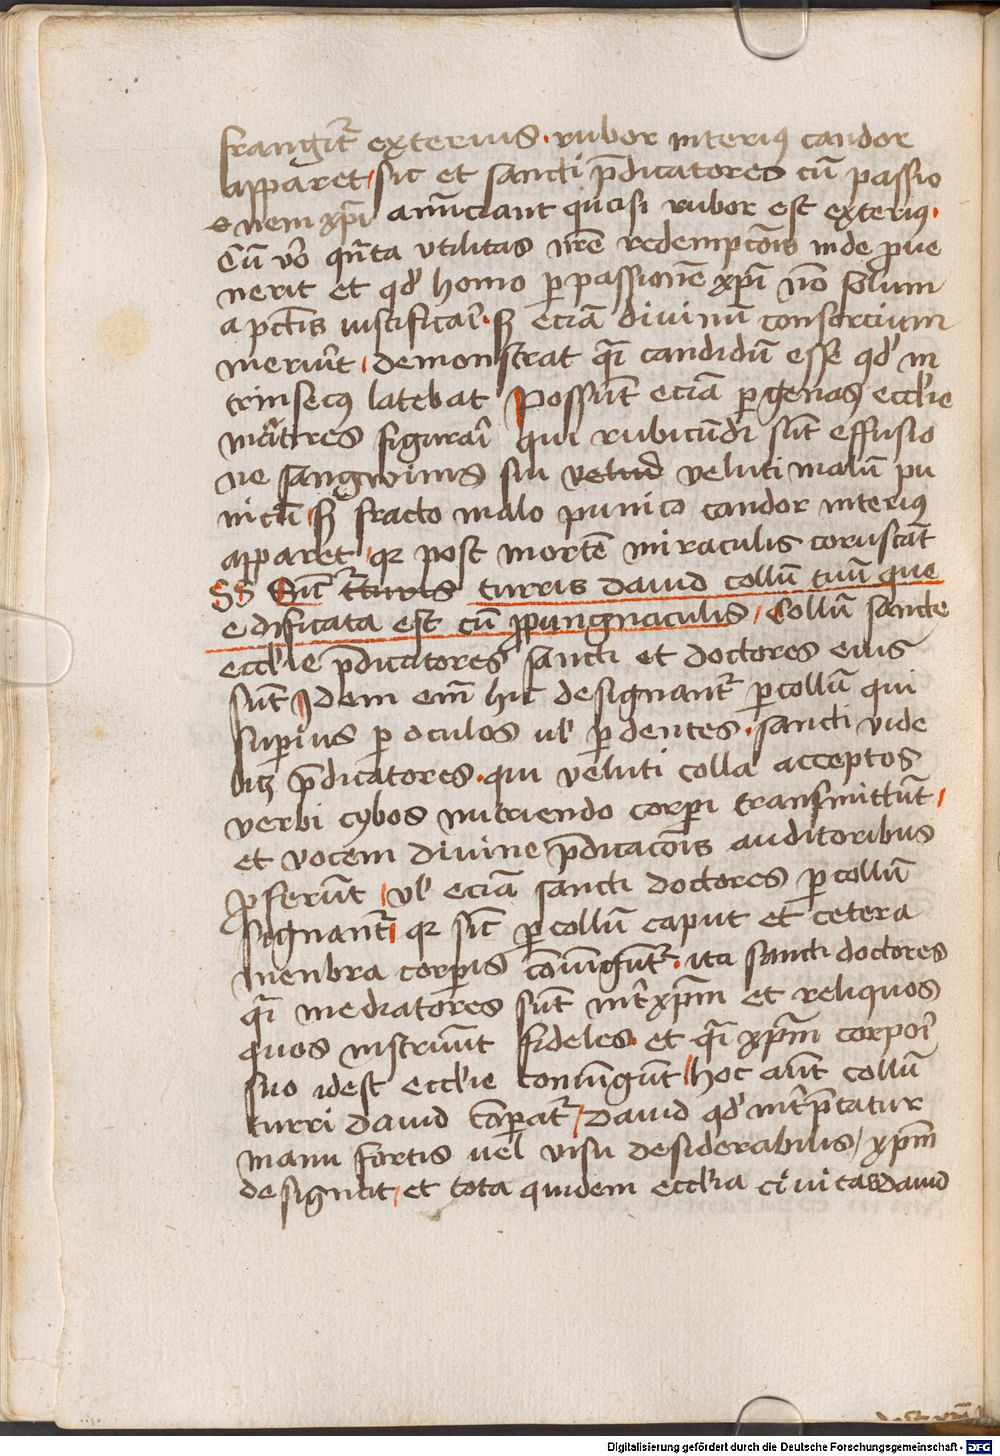 frangit̄ exterius · rubor interiꝯ candor
apparet / sic et sancti p̄dicatores cū passio
nem xp̄i an̄uciant quasi rubor est exteriꝯ ·
Cū v̊o qn̄ta vtilitas nr̄e redempc̄ois inde ꝓue
nerit et qd' homo ꝑ passionē xp̄i nō solum
a pct̄is iustificari · sꝫ eciā diuinū consorcium
meruīt / demonstrat qͣi candidū esse qd' in
trinsecꝯ latebat Possūt eciā ꝑ genas eccl'ie
mr̄tires figurari qui rubicūdi sūt effusio
ne sangwinis sui velud veluti malū pu
nicū / sꝫ fracto malo punico candor interiꝯ
apparet / qꝛ post mortē miraculis coruscāt
SS Sicut̄ turris turris dauid collū tuū que
edificata est cū ꝓpungnaculis / Collū sancte
eccl'ie p̄dicatores sancti et doctores eius
sūt Idem em̄ hic designant̄ ꝑ collū qui
suꝑius ꝑ oculos ul' ꝑ dentes · sancti vide
licꝫ p̄dicatores · qui veluti colla acceptos
verbi cybos nutriendo corꝑi transmittūt /
et vocem diuine p̄dicac̄ois auditoribus
ꝓferūt / vl' eciā sancti doctores ꝑ collū
signant̄ / qꝛ sic̄ ꝑ collū caput et cetera
menbra corꝑis cōiūgūt̄ · ita sancti doctores
qͣi mediatores sūt int̄ xp̄m et reliquos
quos instrūnt fideles · et qͣi xp̄m corpori
suo idest eccl'ie coniūgūt / hoc aūt collū
turri dauid cōꝑat̄ / dauid qd' int̄p̄tatur
manu fortis uel visu desiderabilis / xp̄m
designat / et tota quidem eccl'ia ciuitas dauid
Digitalisierung gefördert durch die Deutsche Forschungsgemeinschaft - DFG